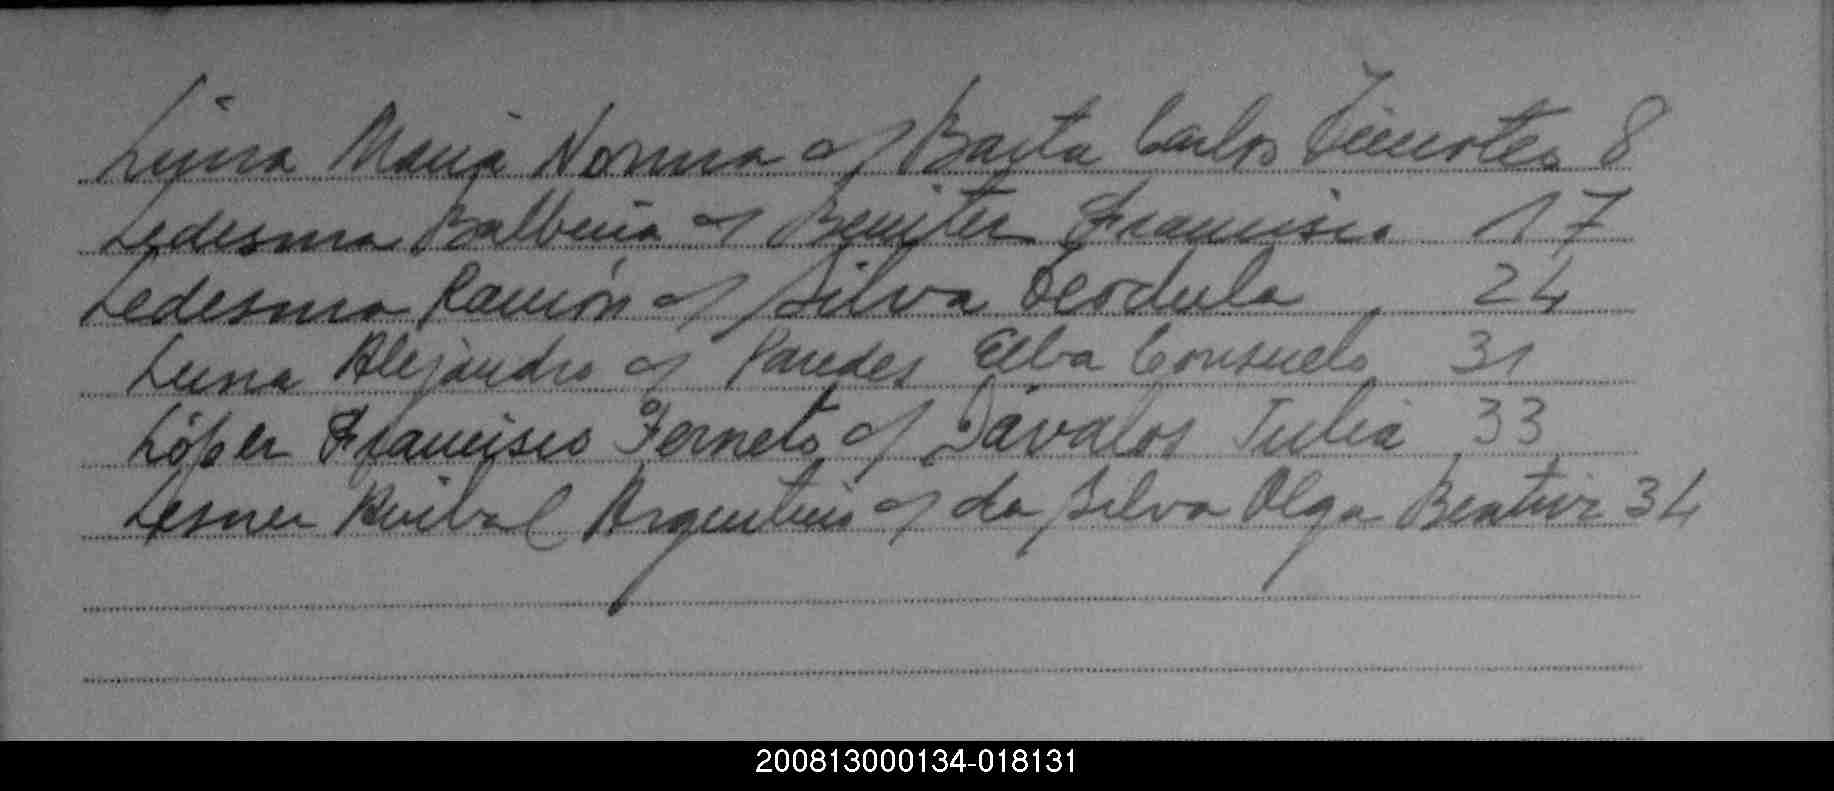 María Norma c/ Barta Carlos Timoteo 8
Ledesma Balbina c/ Benitez Francisco 17
Ledesma Ramón c/ Silva Teodula 24
Luna Alejandro c/ Paredes Elba Consuelo 31
López Francisco Fermeto c/ Dávalos Julia 33
Lesner Anibal Argentino c/ da Silva Olga Beatriz 34
200813000134-018131